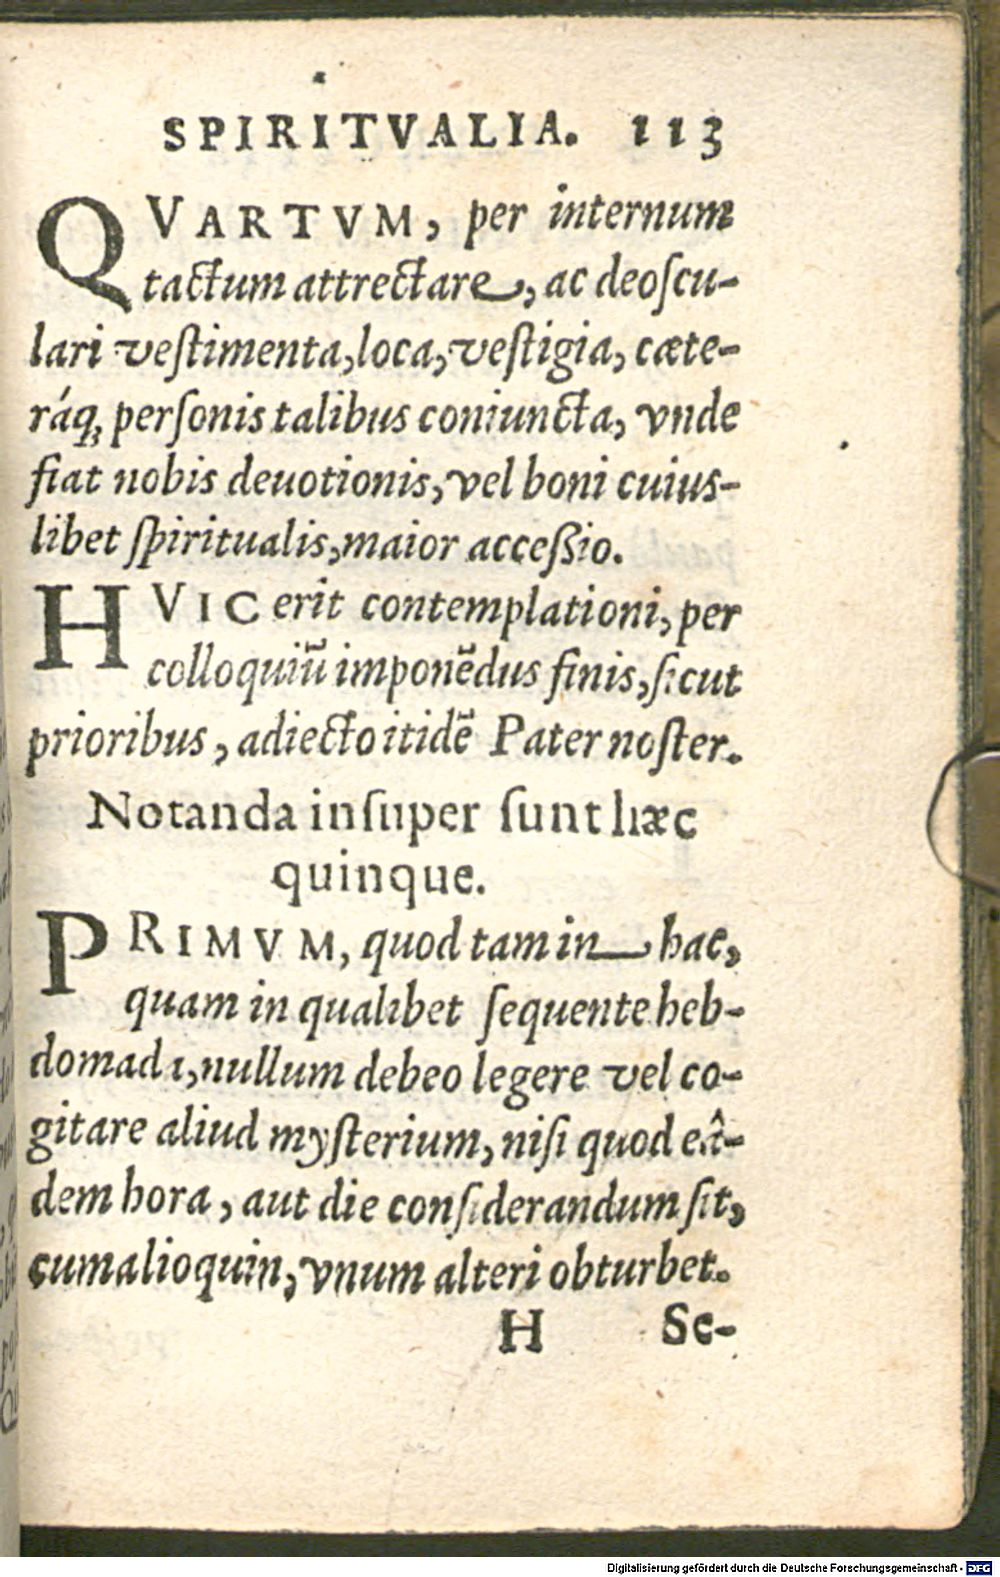 SPIRITVALIA. 113
QVARTVM, per internum
tactum attrectare, ac deoſcu-
lari veſtimenta, loca, veſtigia, cæte-
ráq; perſonis talibus coniuncta, vnde
fiat nobis deuotionis, vel boni cuius-
libet ſpiritualis, maior acceßio.
HVIC erit contemplationi, per
colloquiū imponēdus finis, ſicut
prioribus, adiecto itidē Pater noſter.
Notanda inſuper ſunt hæc
quinque.
PRIMVM, quod tam in hac,
quam in qualibet ſequente heb-
domada, nullum debeo legere vel co-
gitare aliud myſterium, niſi quod eâ-
dem hora, aut die conſiderandum ſit,
cum alioquin, vnum alteri obturbet.
H Se-
Digitalisierung gefördert durch die Deutsche Forschungsgemeinschaft - DFG